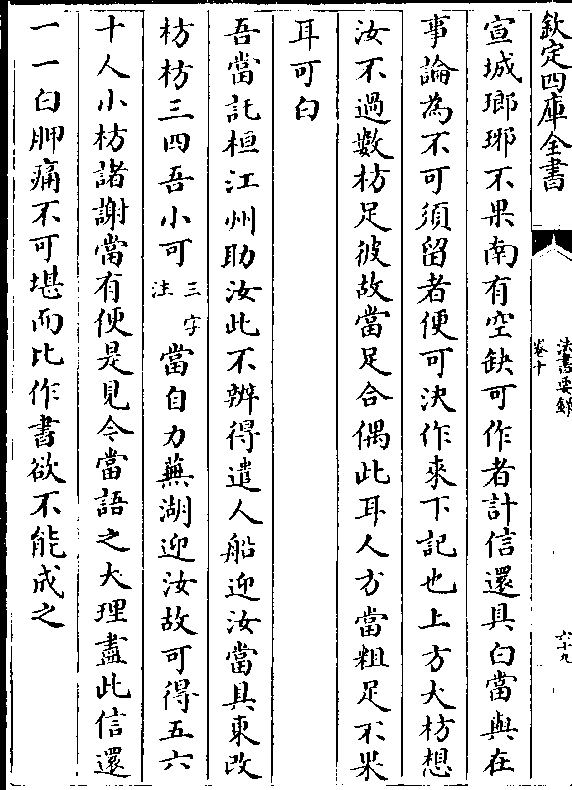 欽定四庫全書
法書要錄
卷十
六十九
宣城瑯琊不果南有空缺可作者計信還具白當與在
事論為不可須留者便可決作來下記也上方大枋想
汝不過數枋足彼故當足合偶此耳人方當粗足不果
耳可白
吾當託桓江州助汝此不辨得遣人船迎汝當具東改
枋枋三四吾小可三字注當自力蕪湖迎汝故可得五六
十人小枋諸謝當有便是見令當語之大理盡此信還
一一白胛痛不可堪而比作書欲不能成之